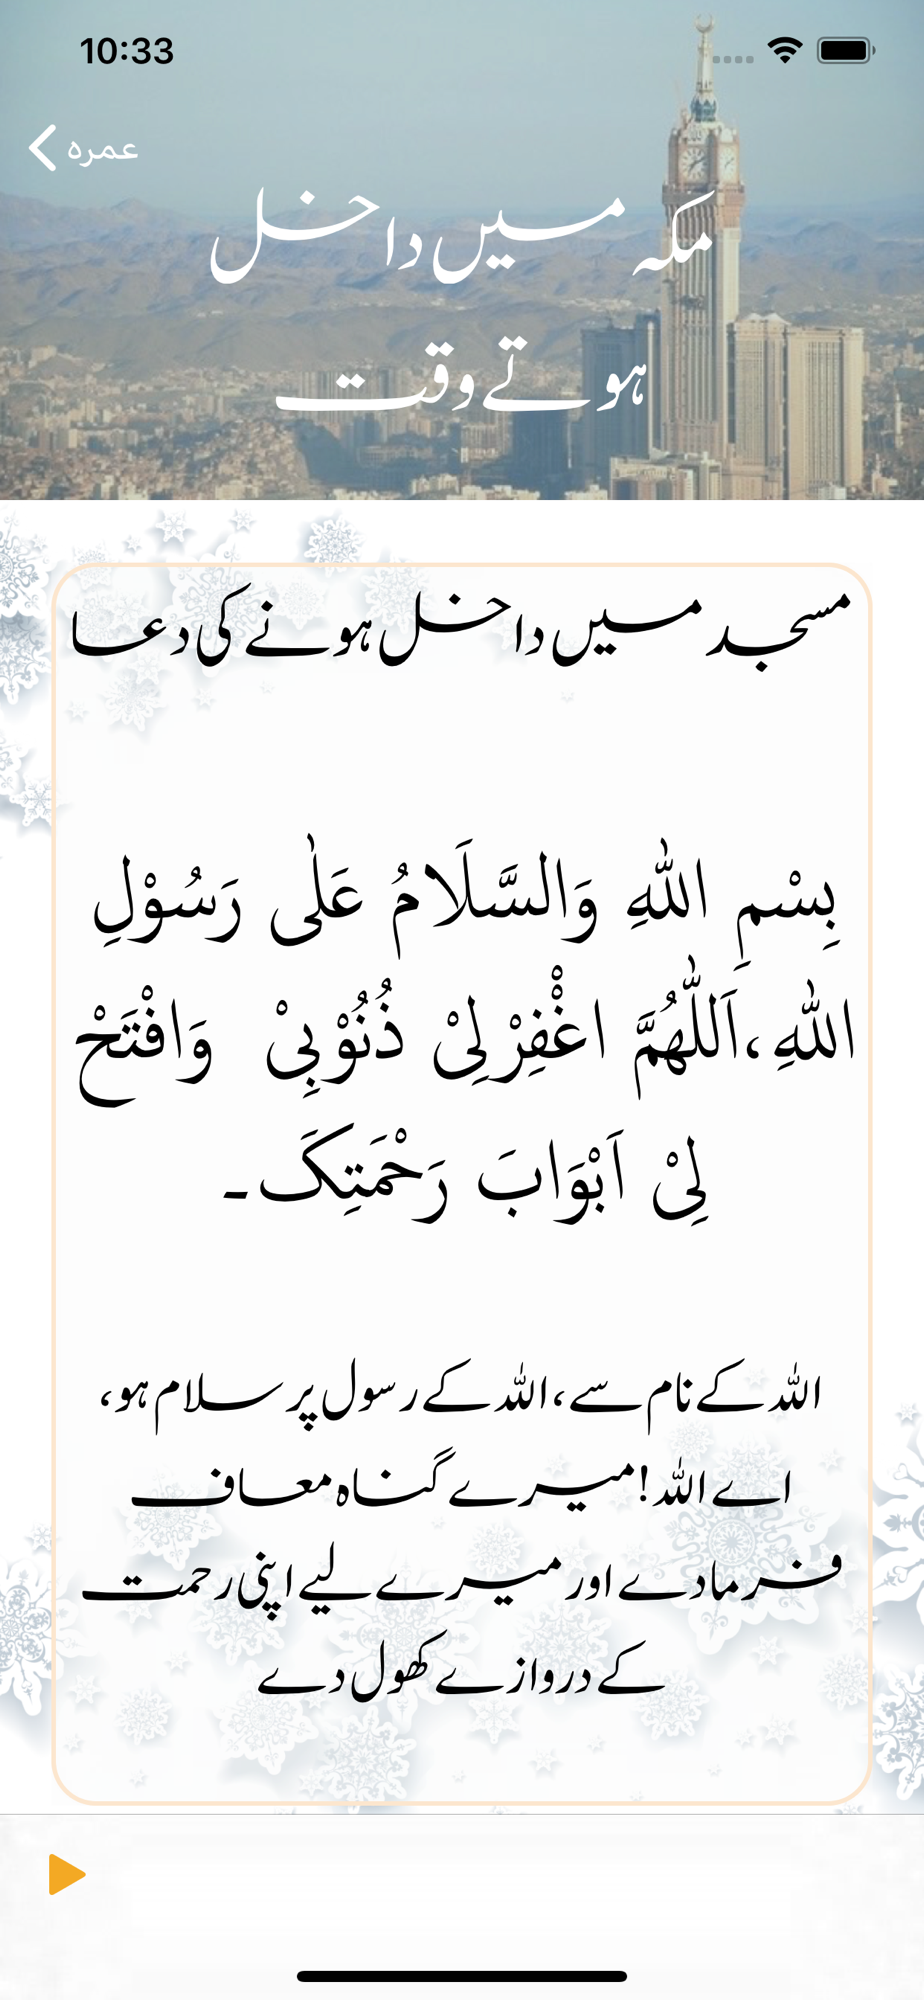 10:33
عمرہ
مکہ میں داخل
ہوتے وقت
مسجد میں داخل ہونے کی دعا
بِسْمِ اللّٰهِ وَالسَّلَامُ عَلٰی رَسُوْلِ
اللّٰهِ،اَللّٰهُمَّ اغْفِرْلِیْ ذُنُوْبِیْ وَافْتَحْ
لِیْ اَبْوَابَ رَحْمَتِکَ۔
اللہ کے نام سے،اللہ کے رسول پر سلام ہو،
اے اللہ!میرے گناہ معاف
فرمادے اور میرے لیے اپنی رحمت
کے دروازے کھول دے